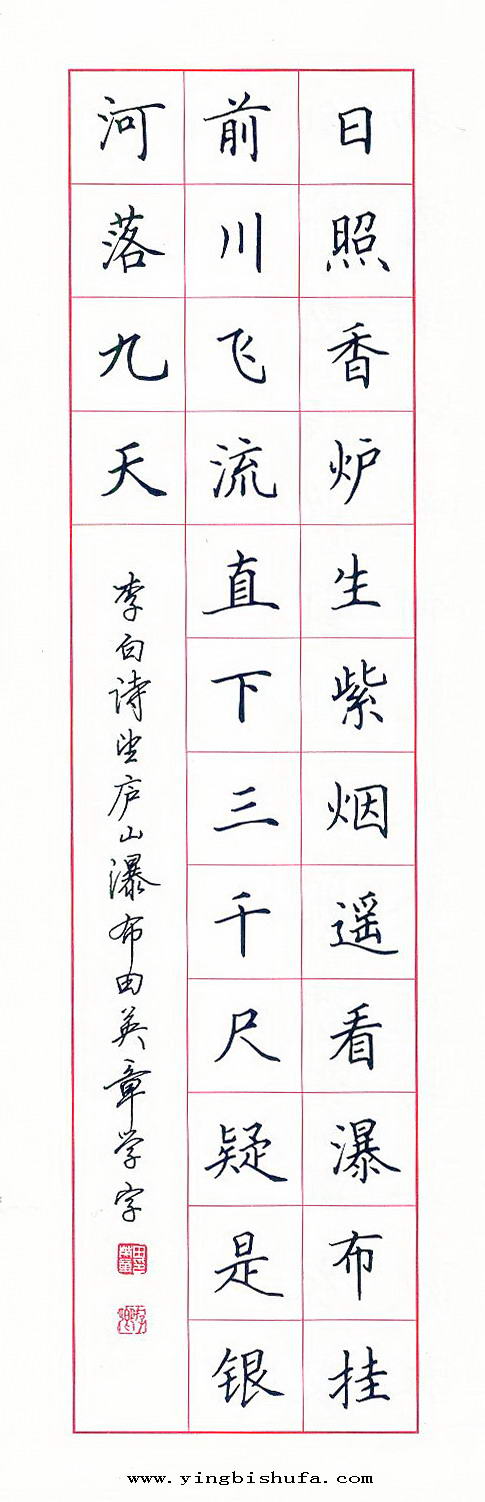 日照香炉生紫烟遥看瀑布挂
前川飞流直下三千尺疑是银
河落九天
李白诗望庐山瀑布田英章学字
www.yingbishufa.com